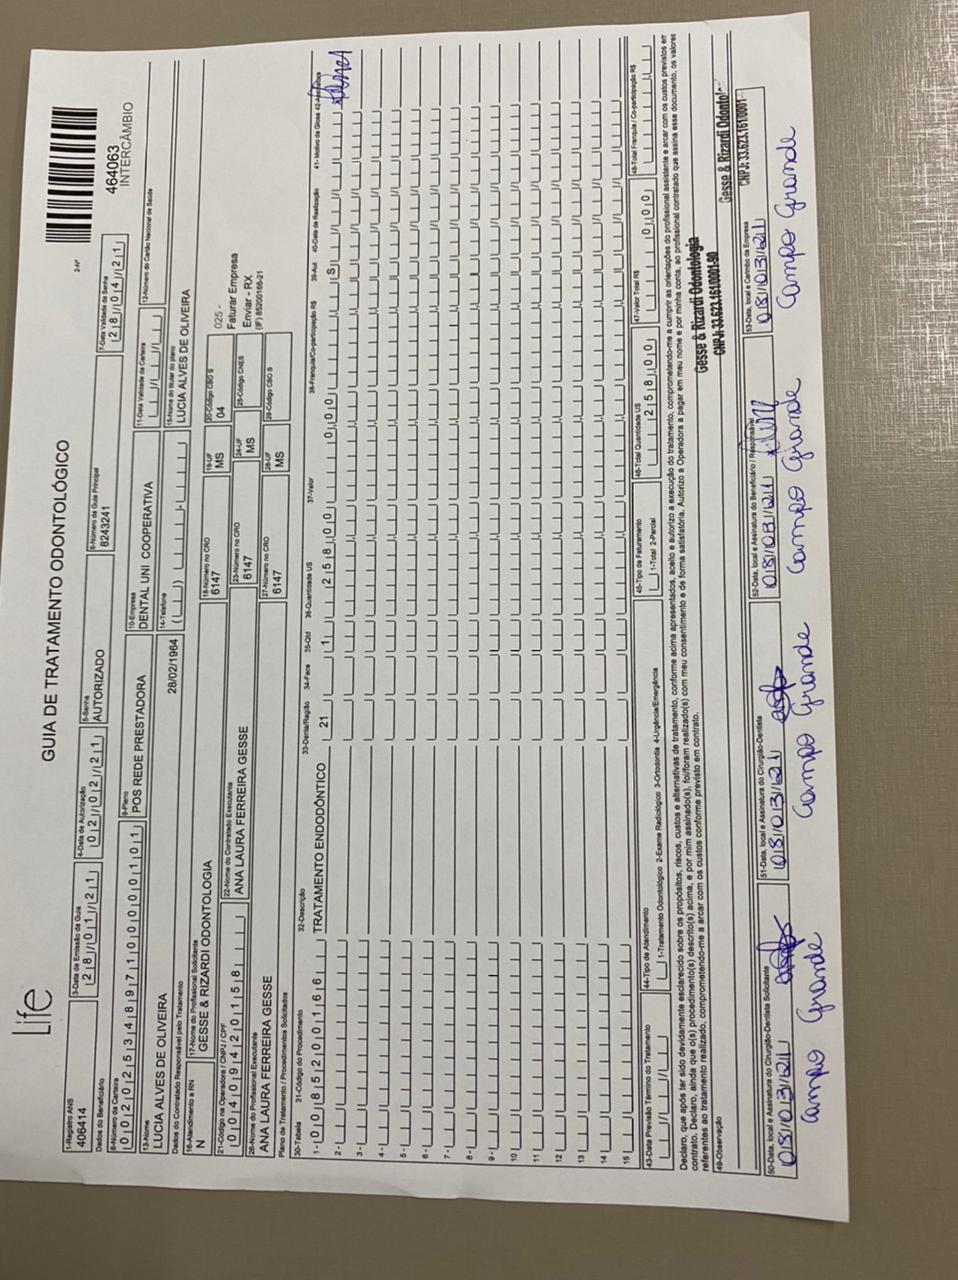 Life
GUIA DE TRATAMENTO ODONTOLÓGICO
2-Nº
464063
INTERCÂMBIO
1-Registro ANS
406414
3-Data de Emissão da Guia
28/01/21
4-Data de Autorização
02/02/21
5-Senha
AUTORIZADO
6-Número da Guia Principal
8243241
7-Data Validade da Senha
28/04/21
Dados do Beneficiário
8-Número da Carteira
00202534897100000101
9-Plano
POS REDE PRESTADORA
10-Empresa
DENTAL UNI COOPERATIVA
11-Data Validade da Carteira
12-Número do Cartão Nacional de Saúde
13-Nome
LUCIA ALVES DE OLIVEIRA
28/02/1964
14-Telefone
15-Nome do titular do plano
LUCIA ALVES DE OLIVEIRA
Dados do Contratado Responsável pelo Tratamento
16-Atendimento a RN
N
17-Nome do Profissional Solicitante
GESSE & RIZARDI ODONTOLOGIA
18-Número no CRO
6147
19-UF
MS
20-Código CBO S
04
025 -
Faturar Empresa
Enviar - RX
(IF) 85200166-21
21-Código na Operadora / CNPJ / CPF
00409420158
22-Nome do Contratado Executante
ANA LAURA FERREIRA GESSE
23-Número no CRO
6147
24-UF
MS
25-Código CNES
26-Nome do Profissional Executante
ANA LAURA FERREIRA GESSE
27-Número no CRO
6147
28-UF
MS
29-Código CBO S
Plano de Tratamento / Procedimentos Solicitados
30-Tabela 31-Código do Procedimento 32-Descrição 33-Dente/Região 34-Face 35-Qtd 36-Quantidade US 37-Valor 38-Franquia/Co-participação R$ 39-Aut 40-Data de Realização 41- Motivo da Glosa 42-Assinatura
1 - 0085200166 TRATAMENTO ENDODÔNTICO 21 1 258,00 0,00 S
2 -
3 -
4 -
5 -
6 -
7 -
8 -
9 -
10
11
12
13
14
15
43-Data Previsão Término do Tratamento
44-Tipo de Atendimento
1-Tratamento Odontológico 2-Exame Radiológico 3-Ortodontia 4-Urgência/Emergência
45-Tipo de Faturamento
1-Total 2-Parcial
46-Total Quantidade US
258,00
47-Valor Total R$
0,00
48-Total Franquia / Co-participação R$
Declaro, que após ter sido devidamente esclarecido sobre os propósitos, riscos, custos e alternativas de tratamento, conforme acima apresentados, aceito e autorizo a execução do tratamento, comprometendo-me a cumprir as orientações do profissional assistente e arcar com os custos previstos em
contrato. Declaro, ainda que o(s) procedimento(s) descrito(s) acima, e por mim assinado(s), foi/foram realizado(s) com meu consentimento e de forma satisfatória. Autorizo a Operadora a pagar em meu nome e por minha conta, ao profissional contratado que assina esse documento, os valores
referentes ao tratamento realizado, comprometendo-me a arcar com os custos conforme previsto em contrato.
49-Observação
Gesse & Rizardi Odontologia
CNPJ: 33.623.161/0001-90
Gesse & Rizardi Odontol
CNPJ: 33.623.161/0001-
50-Data, local e Assinatura do Cirurgião-Dentista Solicitante
08/03/21
Campo Grande
51-Data, local e Assinatura do Cirurgião-Dentista
08/03/21
Campo Grande
52-Data, local e Assinatura do Beneficiário / Responsável
08/03/21
Campo Grande
53-Data, local e Carimbo da Empresa
08/03/21
Campo Grande